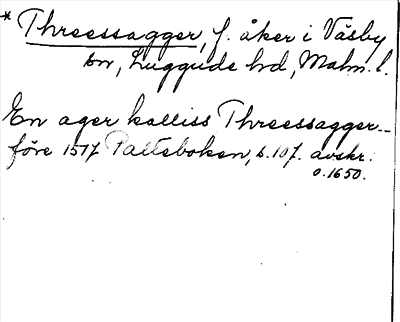 * Threessagger, f. åker i Väsby
sn, Luggude hd, Malm. l.
En ager kalliss Threessagger
före 1517 Palteboken, s. 107. avskr.
o. 1650.